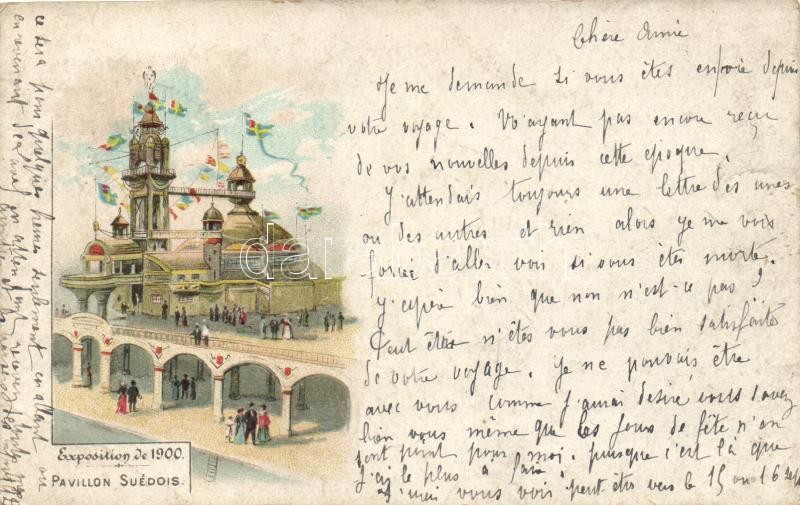 Chère Amie
Je me demande si vous êtes envoie depuis
votre voyage. N'ayant pas encore reçu
de vos nouvelles depuis cette époque.
J'attendais toujours une lettre des unes
ou des autres et rien alors je me vois
forcé d'aller voir si vous êtes morte.
J'espère bien que non n'est-ce pas ?
Peut être n'êtes vous pas bien satisfaite
de votre voyage. Je ne pouvais être
avec vous comme j'aurai désiré vous savez
bien vous même que les jours de fête n'en
sont point pour moi. puisque c'est là que
j'ai le plus à faire
J'irai vous voir peut être vers le 15 ou 16
ce sera pour quelques heures seulement en allant ou
en revenant
Exposition de 1900.
PAVILLON SUÉDOIS.
darabanth